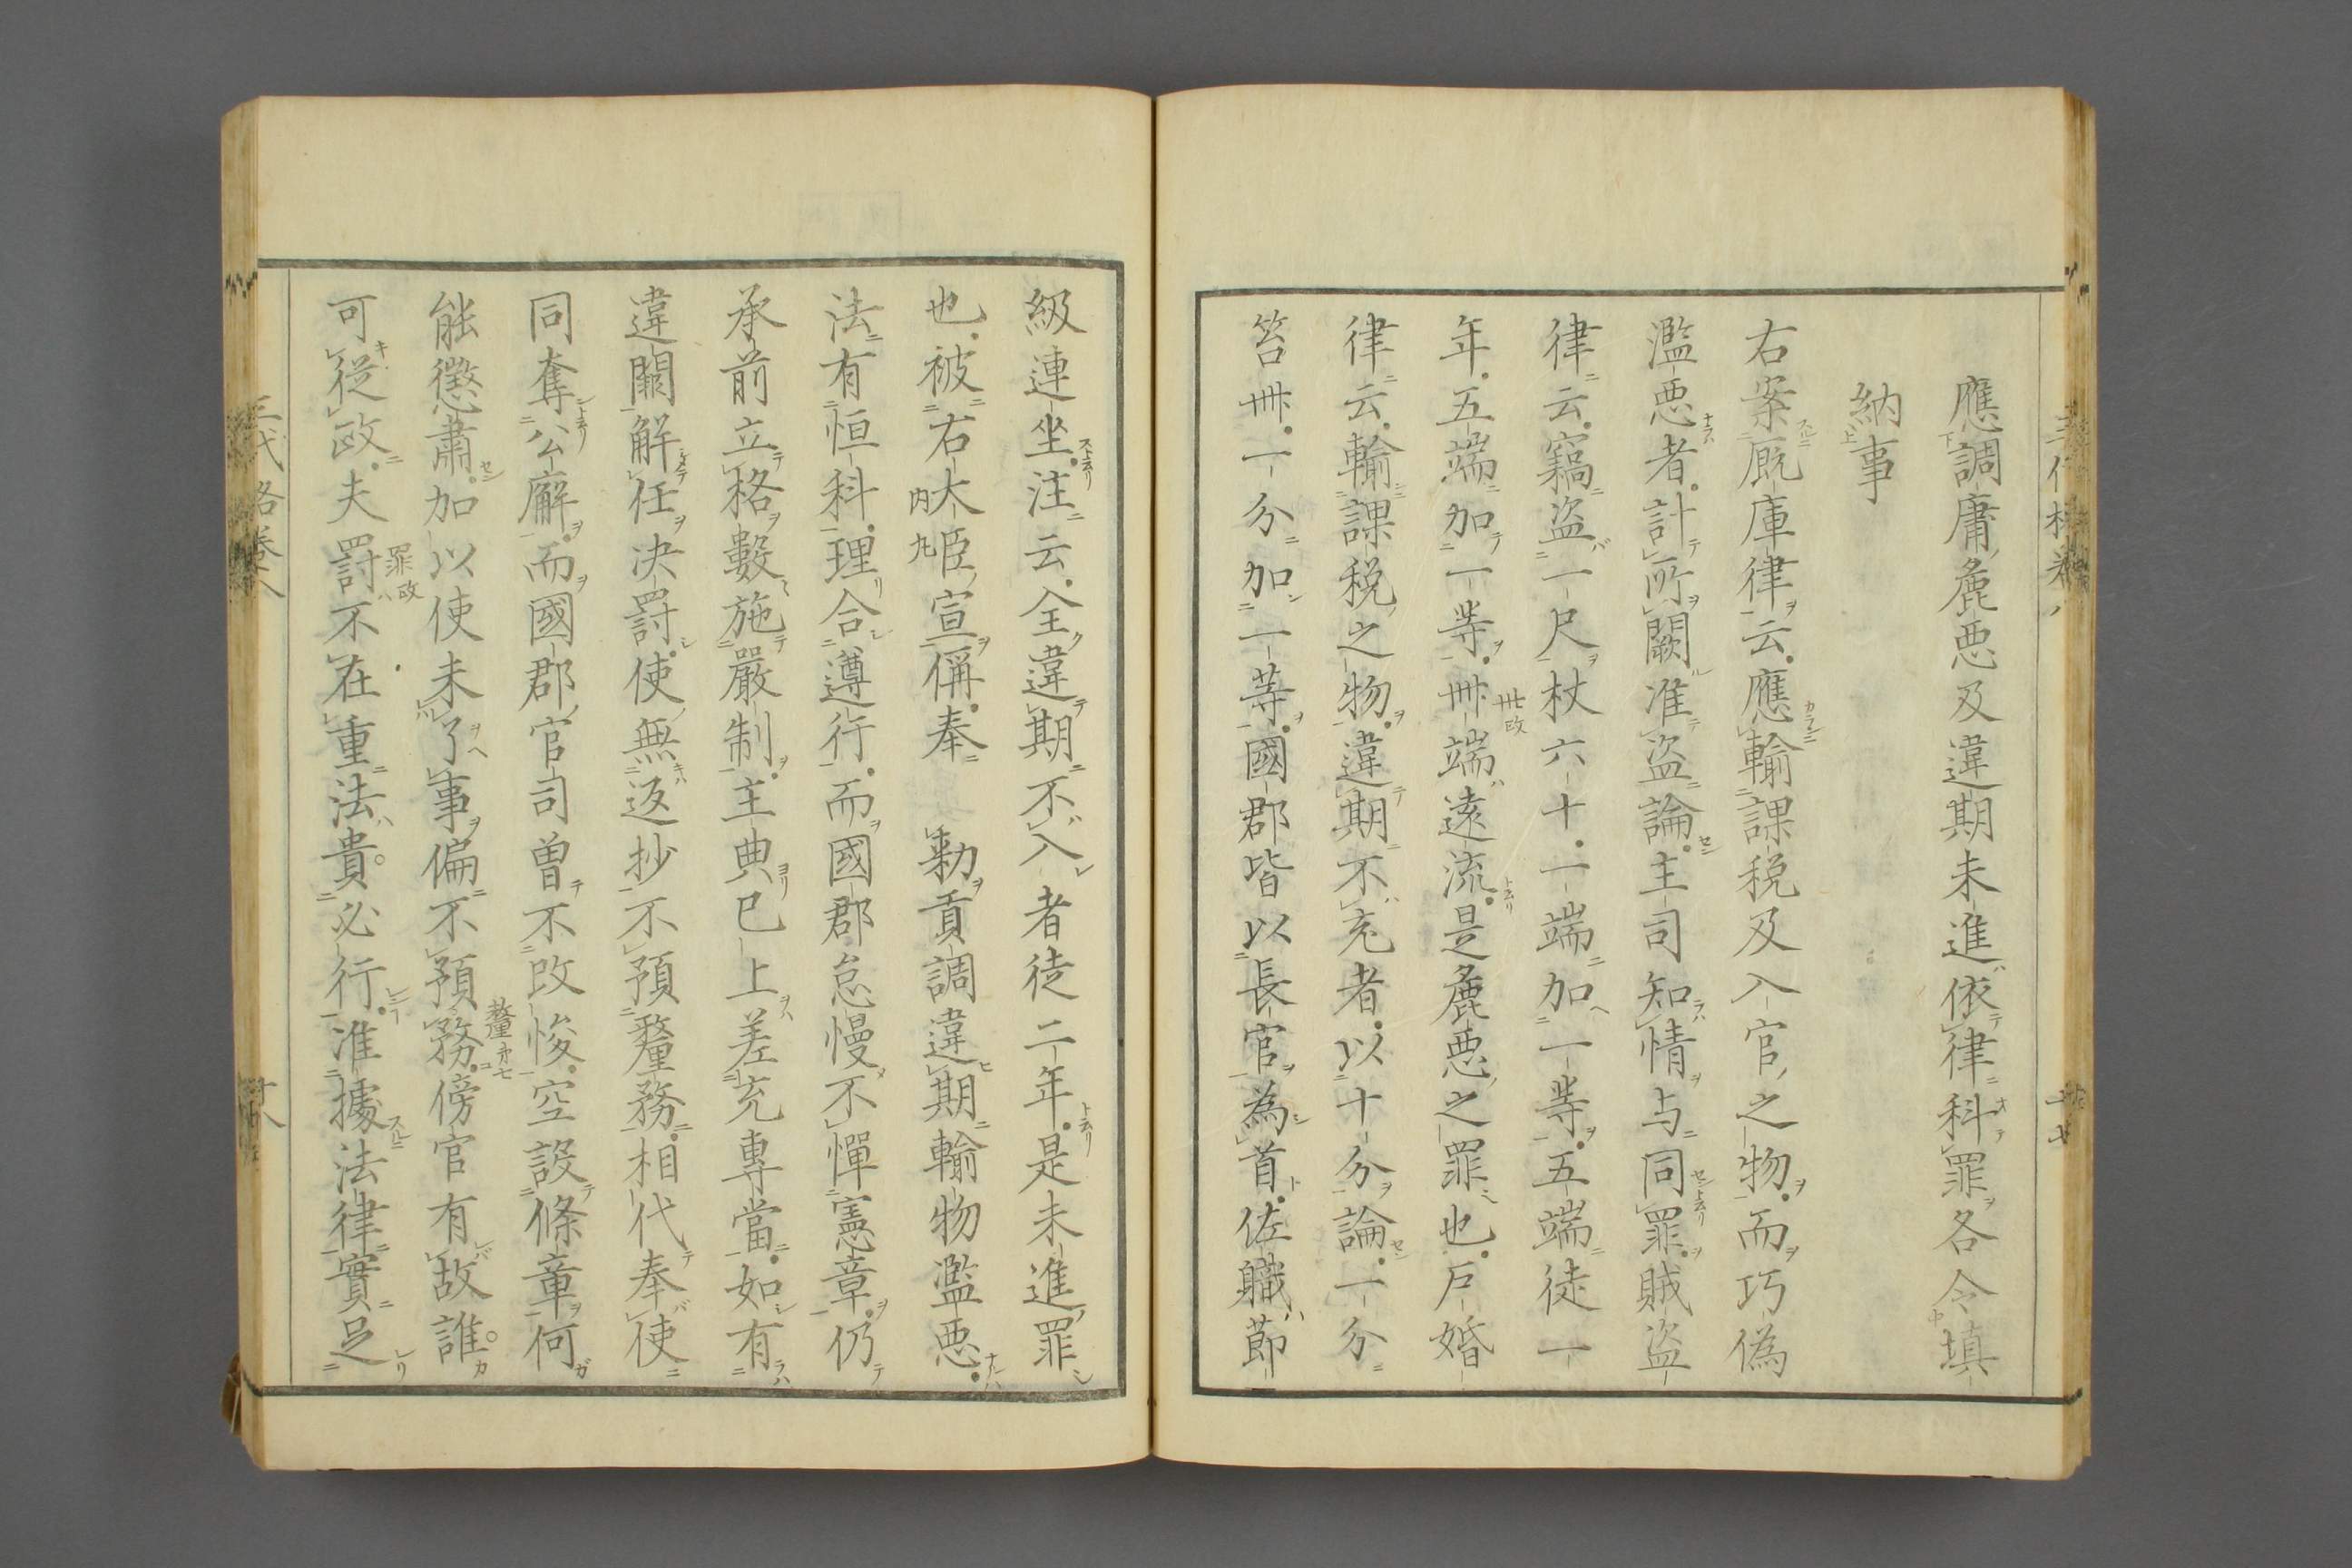 應調庸麁悪及違期未進依律科罪各令填
納事
右案廐庫律云應輸課税及入官之物而巧偽
濫悪者計所闕准盗論主司知情与同罪賊盗
律云竊盗一尺杖六十一端加一等五端徒一
年五端加一等卌端遠流是麁悪之罪也戸婚
律云輸課税之物違期不充者以十分論一分
笞卌一分加一等國郡皆以長官為首佐職節
級連坐注云全違期不入者徒二年是未進罪
也被右大臣宣偁奉　勑貢調違期輸物濫悪
法有恒科理合遵行而國郡怠慢不憚憲章仍
承前立格數施嚴制主典已上差充專當如有
違闕解任决罸使無返抄不預釐務相代奉使
同奪公廨而國郡官司曽不改悛空設條章何
能懲肅加以使未了事偏不預務傍官有故誰
可從政夫罸不在重法貴必行准據法律實足
三代格巻八